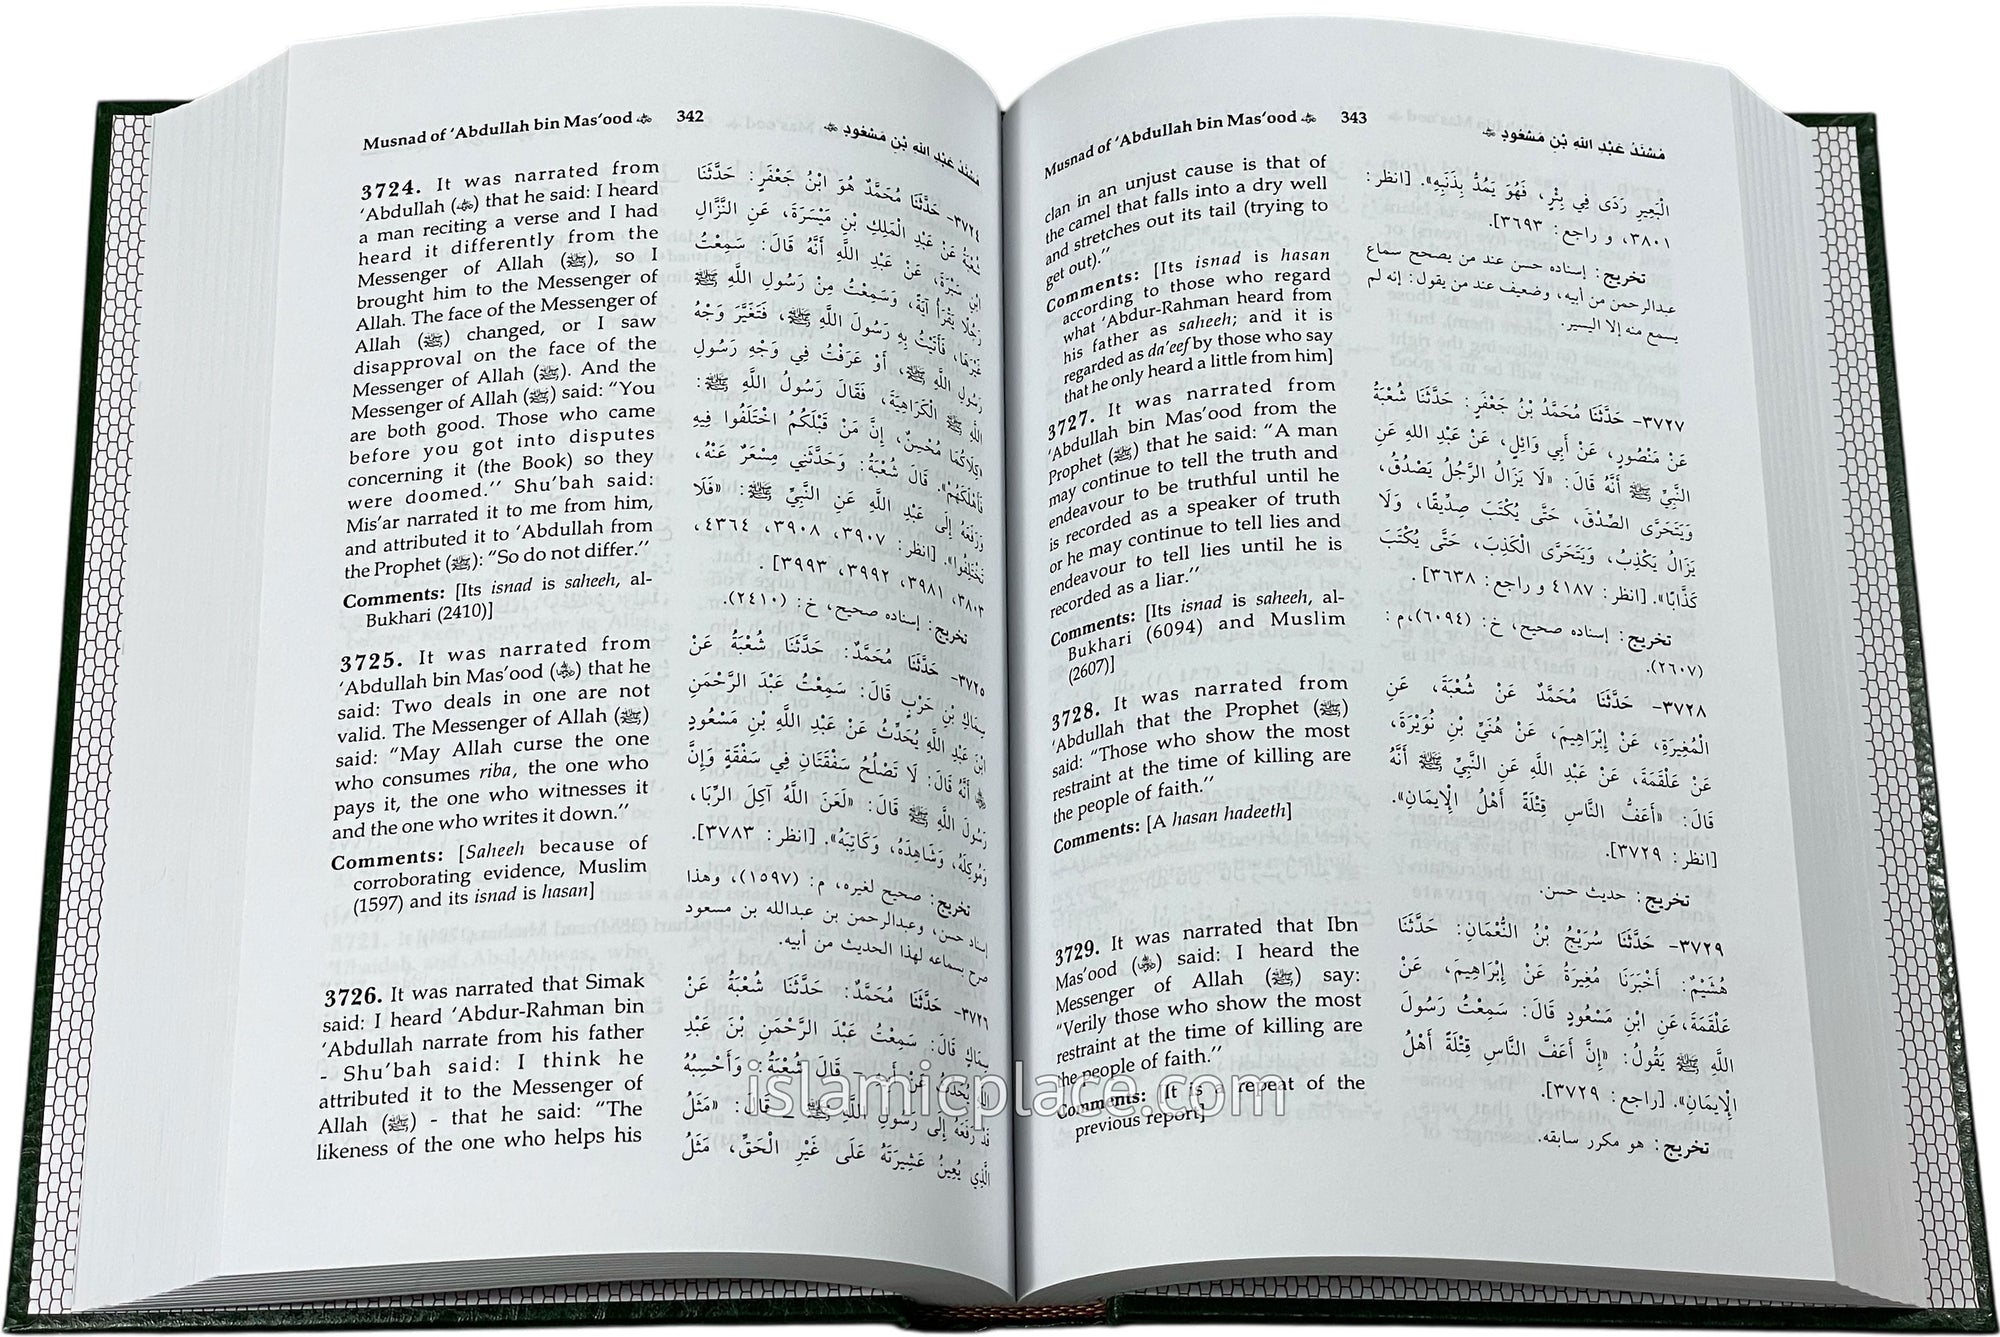 Musnad of ‘Abdullah bin Mas‘ood 342
مُسْنَدُ عَبْدِ اللهِ بْنِ مَسْعُودٍ
3724. It was narrated from
‘Abdullah () that he said: I heard
a man reciting a verse and I had
heard it differently from the
Messenger of Allah (ﷺ), so I
brought him to the Messenger of
Allah. The face of the Messenger of
Allah (ﷺ) changed, or I saw
disapproval on the face of the
Messenger of Allah (ﷺ). And the
Messenger of Allah (ﷺ) said: “You
are both good. Those who came
before you got into disputes
concerning it (the Book) so they
were doomed.’’ Shu’bah said:
Mis’ar narrated it to me from him,
and attributed it to ‘Abdullah from
the Prophet (ﷺ): “So do not differ.’’
Comments: [Its isnad is saheeh, al-
Bukhari (2410)]
3725. It was narrated from
‘Abdullah bin Mas’ood () that he
said: Two deals in one are not
valid. The Messenger of Allah (ﷺ)
said: “May Allah curse the one
who consumes riba, the one who
pays it, the one who witnesses it
and the one who writes it down.’’
Comments: [Saheeh because of
corroborating evidence, Muslim
(1597) and its isnad is hasan]
3726. It was narrated that Simak
said: I heard ‘Abdur-Rahman bin
‘Abdullah narrate from his father
- Shu’bah said: I think he
attributed it to the Messenger of
Allah (ﷺ) - that he said: “The
likeness of the one who helps his
٣٧٢٤- حَدَّثَنَا مُحَمَّدٌ هُوَ ابْنُ جَعْفَرٍ: حَدَّثَنَا
شُعْبَةُ عَنْ عَبْدِ الْمَلِكِ بْنِ مَيْسَرَةَ، عَنِ النَّزَّالِ
ابْنِ سَبْرَةَ، عَنْ عَبْدِ اللَّهِ أَنَّهُ قَالَ: سَمِعْتُ
رَجُلًا يَقْرَأُ آيَةً، وَسَمِعْتُ مِنْ رَسُولِ اللَّهِ ﷺ
غَيْرَهَا، فَأَتَيْتُ بِهِ رَسُولَ اللَّهِ ﷺ، فَتَغَيَّرَ وَجْهُ
رَسُولِ اللَّهِ ﷺ، أَوْ عَرَفْتُ فِي وَجْهِ رَسُولِ
اللَّهِ ﷺ الْكَرَاهِيَةَ، فَقَالَ رَسُولُ اللَّهِ ﷺ:
«كِلَاكُمَا مُحْسِنٌ، إِنَّ مَنْ قَبْلَكُمُ اخْتَلَفُوا فِيهِ
فَأَهْلَكَهُمْ». قَالَ شُعْبَةُ: وَحَدَّثَنِي مِسْعَرٌ عَنْهُ،
وَرَفَعَهُ إِلَى عَبْدِ اللَّهِ عَنِ النَّبِيِّ ﷺ: «فَلَا
تَخْتَلِفُوا». [انظر: ٣٩٠٧، ٣٩٠٨، ٤٣٦٤،
٣٨٠٣، ٣٩٨١، ٣٩٩٢، ٣٩٩٣].
تخريج: إسناده صحيح، خ: (٢٤١٠).
٣٧٢٥- حَدَّثَنَا مُحَمَّدٌ: حَدَّثَنَا شُعْبَةُ عَنْ
سِمَاكِ بْنِ حَرْبٍ قَالَ: سَمِعْتُ عَبْدَ الرَّحْمَنِ
ابْنَ عَبْدِ اللَّهِ يُحَدِّثُ عَنْ عَبْدِ اللَّهِ بْنِ مَسْعُودٍ
أَنَّهُ قَالَ: لَا تَصْلُحُ سَفْقَتَانِ فِي سَفْقَةٍ وَإِنَّ
رَسُولَ اللَّهِ ﷺ قَالَ: «لَعَنَ اللَّهُ آكِلَ الرِّبَا،
وَمُوكِلَهُ، وَشَاهِدَهُ، وَكَاتِبَهُ». [انظر: ٣٧٨٣].
تخريج: صحيح لغيره، م: (١٥٩٧)، وهذا
إسناد حسن، وعبدالرحمن بن عبدالله بن مسعود
صرح بسماعه لهذا الحديث من أبيه.
٣٧٢٦- حَدَّثَنَا مُحَمَّدٌ: حَدَّثَنَا شُعْبَةُ عَنْ
سِمَاكٍ قَالَ: سَمِعْتُ عَبْدَ الرَّحْمَنِ بْنَ عَبْدِ
اللَّهِ يُحَدِّثُ عَنْ أَبِيهِ - قَالَ شُعْبَةُ: وَأَحْسِبُهُ
قَدْ رَفَعَهُ إِلَى رَسُولِ اللَّهِ ﷺ - قَالَ: «مَثَلُ
الَّذِي يُعِينُ عَشِيرَتَهُ عَلَى غَيْرِ الْحَقِّ، مَثَلُ
Musnad of ‘Abdullah bin Mas‘ood 343
مُسْنَدُ عَبْدِ اللهِ بْنِ مَسْعُودٍ
clan in an unjust cause is that of
the camel that falls into a dry well
and stretches out its tail (trying to
get out).’’
Comments: [Its isnad is hasan
according to those who regard
what ‘Abdur-Rahman heard from
his father as saheeh; and it is
regarded as da’eef by those who say
that he only heard a little from him]
3727. It was narrated from
‘Abdullah bin Mas’ood from the
Prophet (ﷺ) that he said: “A man
may continue to tell the truth and
endeavour to be truthful until he
is recorded as a speaker of truth
or he may continue to tell lies and
endeavour to tell lies until he is
recorded as a liar.’’
Comments: [Its isnad is saheeh, al-
Bukhari (6094) and Muslim
(2607)]
3728. It was narrated from
‘Abdullah that the Prophet (ﷺ)
said: “Those who show the most
restraint at the time of killing are
the people of faith.’’
Comments: [A hasan hadeeth]
3729. It was narrated that Ibn
Mas’ood () said: I heard the
Messenger of Allah (ﷺ) say:
“Verily those who show the most
restraint at the time of killing are
the people of faith.’’
Comments: [It is a repeat of the
previous report]
الْبَعِيرِ رَدَى فِي بِئْرٍ، فَهُوَ يَمُدُّ بِذَنَبِهِ». [انظر:
٣٨٠١، و راجع: ٣٦٩٣].
تخريج: إسناده حسن عند من يصحح سماع
عبدالرحمن من أبيه، وضعيف عند من يقول: إنه لم
يسمع منه إلا اليسير.
٣٧٢٧- حَدَّثَنَا مُحَمَّدُ بْنُ جَعْفَرٍ: حَدَّثَنَا شُعْبَةُ
عَنْ مَنْصُورٍ، عَنْ أَبِي وَائِلٍ، عَنْ عَبْدِ اللهِ عَنِ
النَّبِيِّ ﷺ أَنَّهُ قَالَ: «لَا يَزَالُ الرَّجُلُ يَصْدُقُ،
وَيَتَحَرَّى الصِّدْقَ، حَتَّى يُكْتَبَ صِدِّيقًا، وَلَا
يَزَالُ يَكْذِبُ، وَيَتَحَرَّى الْكَذِبَ، حَتَّى يُكْتَبَ
كَذَّابًا». [انظر: ٤١٨٧ و راجع: ٣٦٣٨].
تخريج: إسناده صحيح، خ: (٦٠٩٤)،م:
(٢٦٠٧).
٣٧٢٨- حَدَّثَنَا مُحَمَّدٌ عَنْ شُعْبَةَ، عَنِ
الْمُغِيرَةِ، عَنْ إِبْرَاهِيمَ، عَنْ هُنَيِّ بْنِ نُوَيْرَةَ،
عَنْ عَلْقَمَةَ، عَنْ عَبْدِ اللَّهِ عَنِ النَّبِيِّ ﷺ أَنَّهُ
قَالَ: «أَعَفُّ النَّاسِ قِتْلَةً أَهْلُ الْإِيمَانِ».
[انظر: ٣٧٢٩].
تخريج: حديث حسن.
٣٧٢٩- حَدَّثَنَا سُرَيْجُ بْنُ النُّعْمَانِ: حَدَّثَنَا
هُشَيْمٌ: أَخْبَرَنَا مُغِيرَةُ عَنْ إِبْرَاهِيمَ، عَنْ
عَلْقَمَةَ،عَنِ ابْنِ مَسْعُودٍ قَالَ: سَمِعْتُ رَسُولَ
اللَّهِ ﷺ يَقُولُ: «إِنَّ أَعَفَّ النَّاسِ قِتْلَةً أَهْلُ
الْإِيمَانِ». [راجع: ٣٧٢٩].
تخريج: هو مكرر سابقه.
islamicplace.com